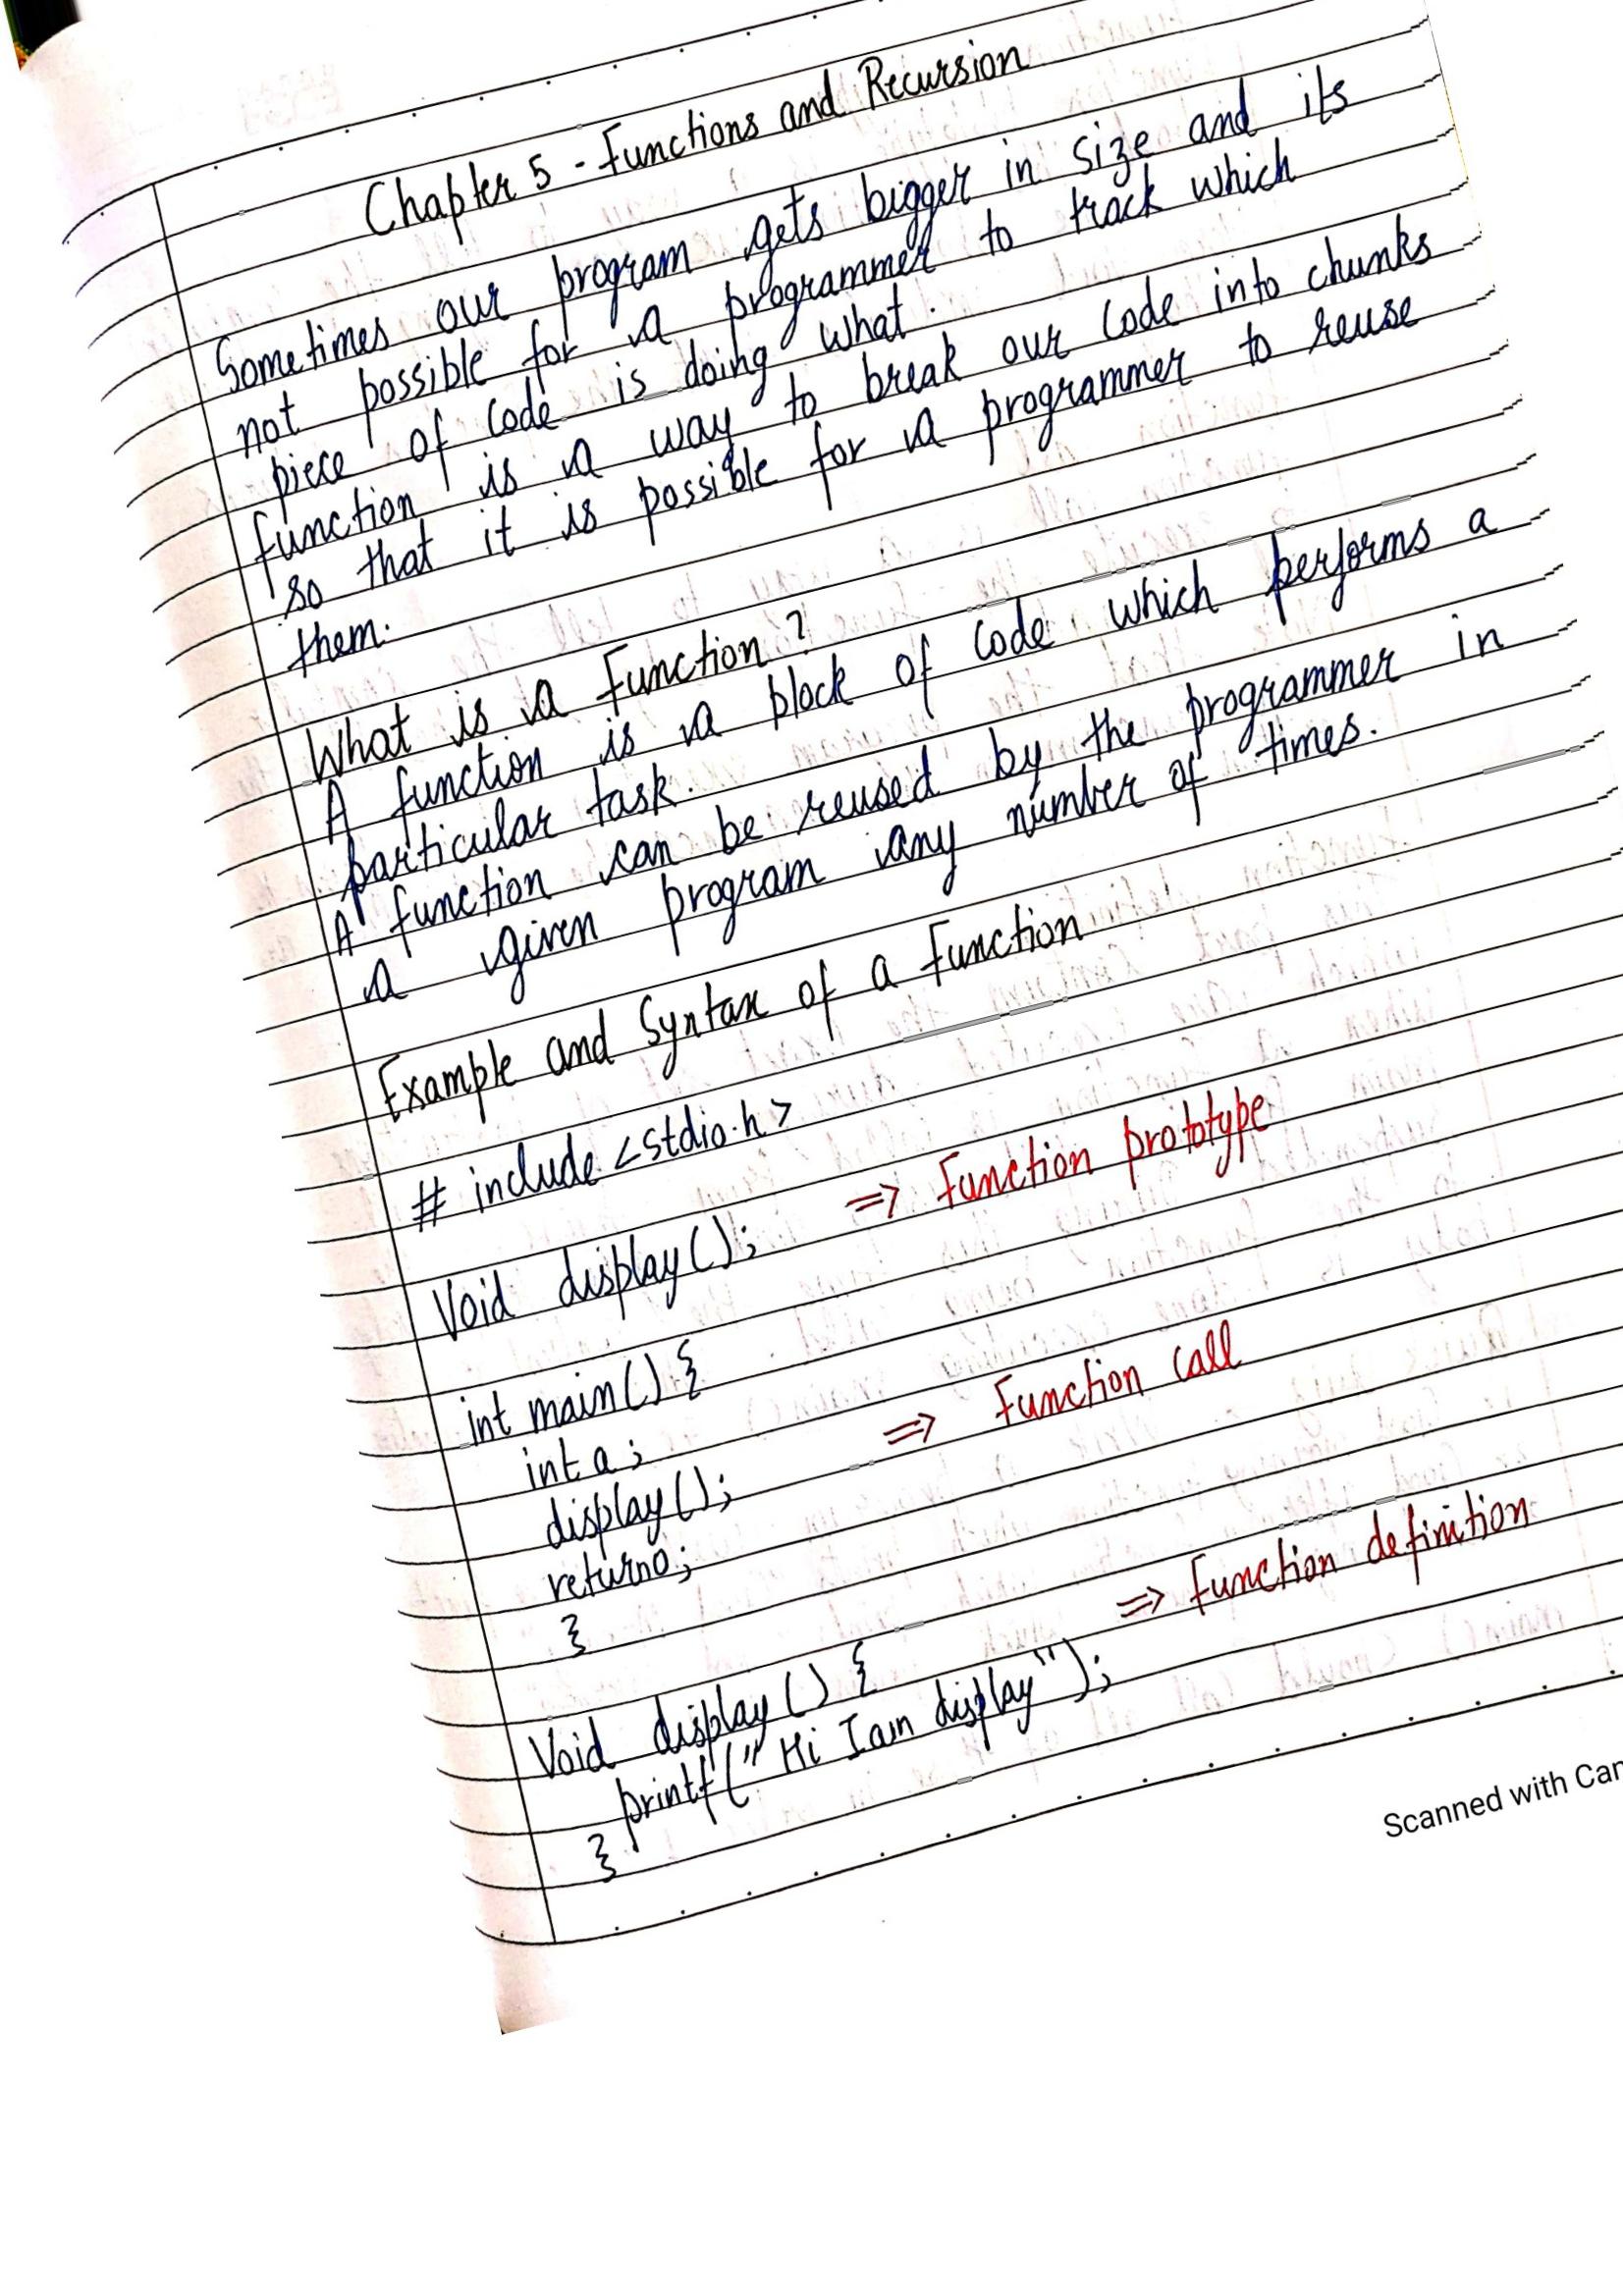 Chapter 5 - Functions and Recursion
Sometimes our program gets bigger in size and its
not possible for a programmer to track which
piece of code is doing what.
function is a way to break our code into chunks
so that it is possible for a programmer to reuse
them.
What is a Function?
A function is a block of code which performs a
particular task.
A function can be reused by the programmer in
a given program any number of times.
Example and Syntax of a Function
# include <stdio.h>
Void display(); => Function prototype
int main() {
int a;
display(); => Function call
return0;
}
Void display() { => Function definition
printf("Hi I am display");
}
Scanned with Cam